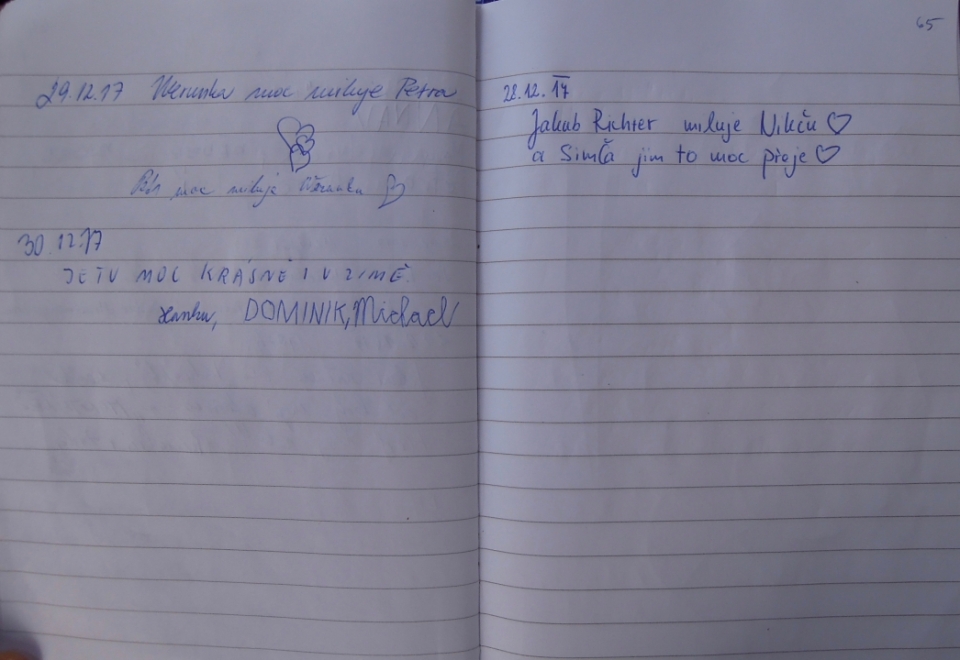 29.12.17 Werunka moc miluje Petra
Petr moc miluje Werunku
30.12.17
JE TU MOC KRÁSNĚ I V ZIMĚ.
Hanka, DOMINIK, Michael
65
28.12.17
Jakub Richter miluje Nikču ♡
a Simča jim to moc přeje ♡